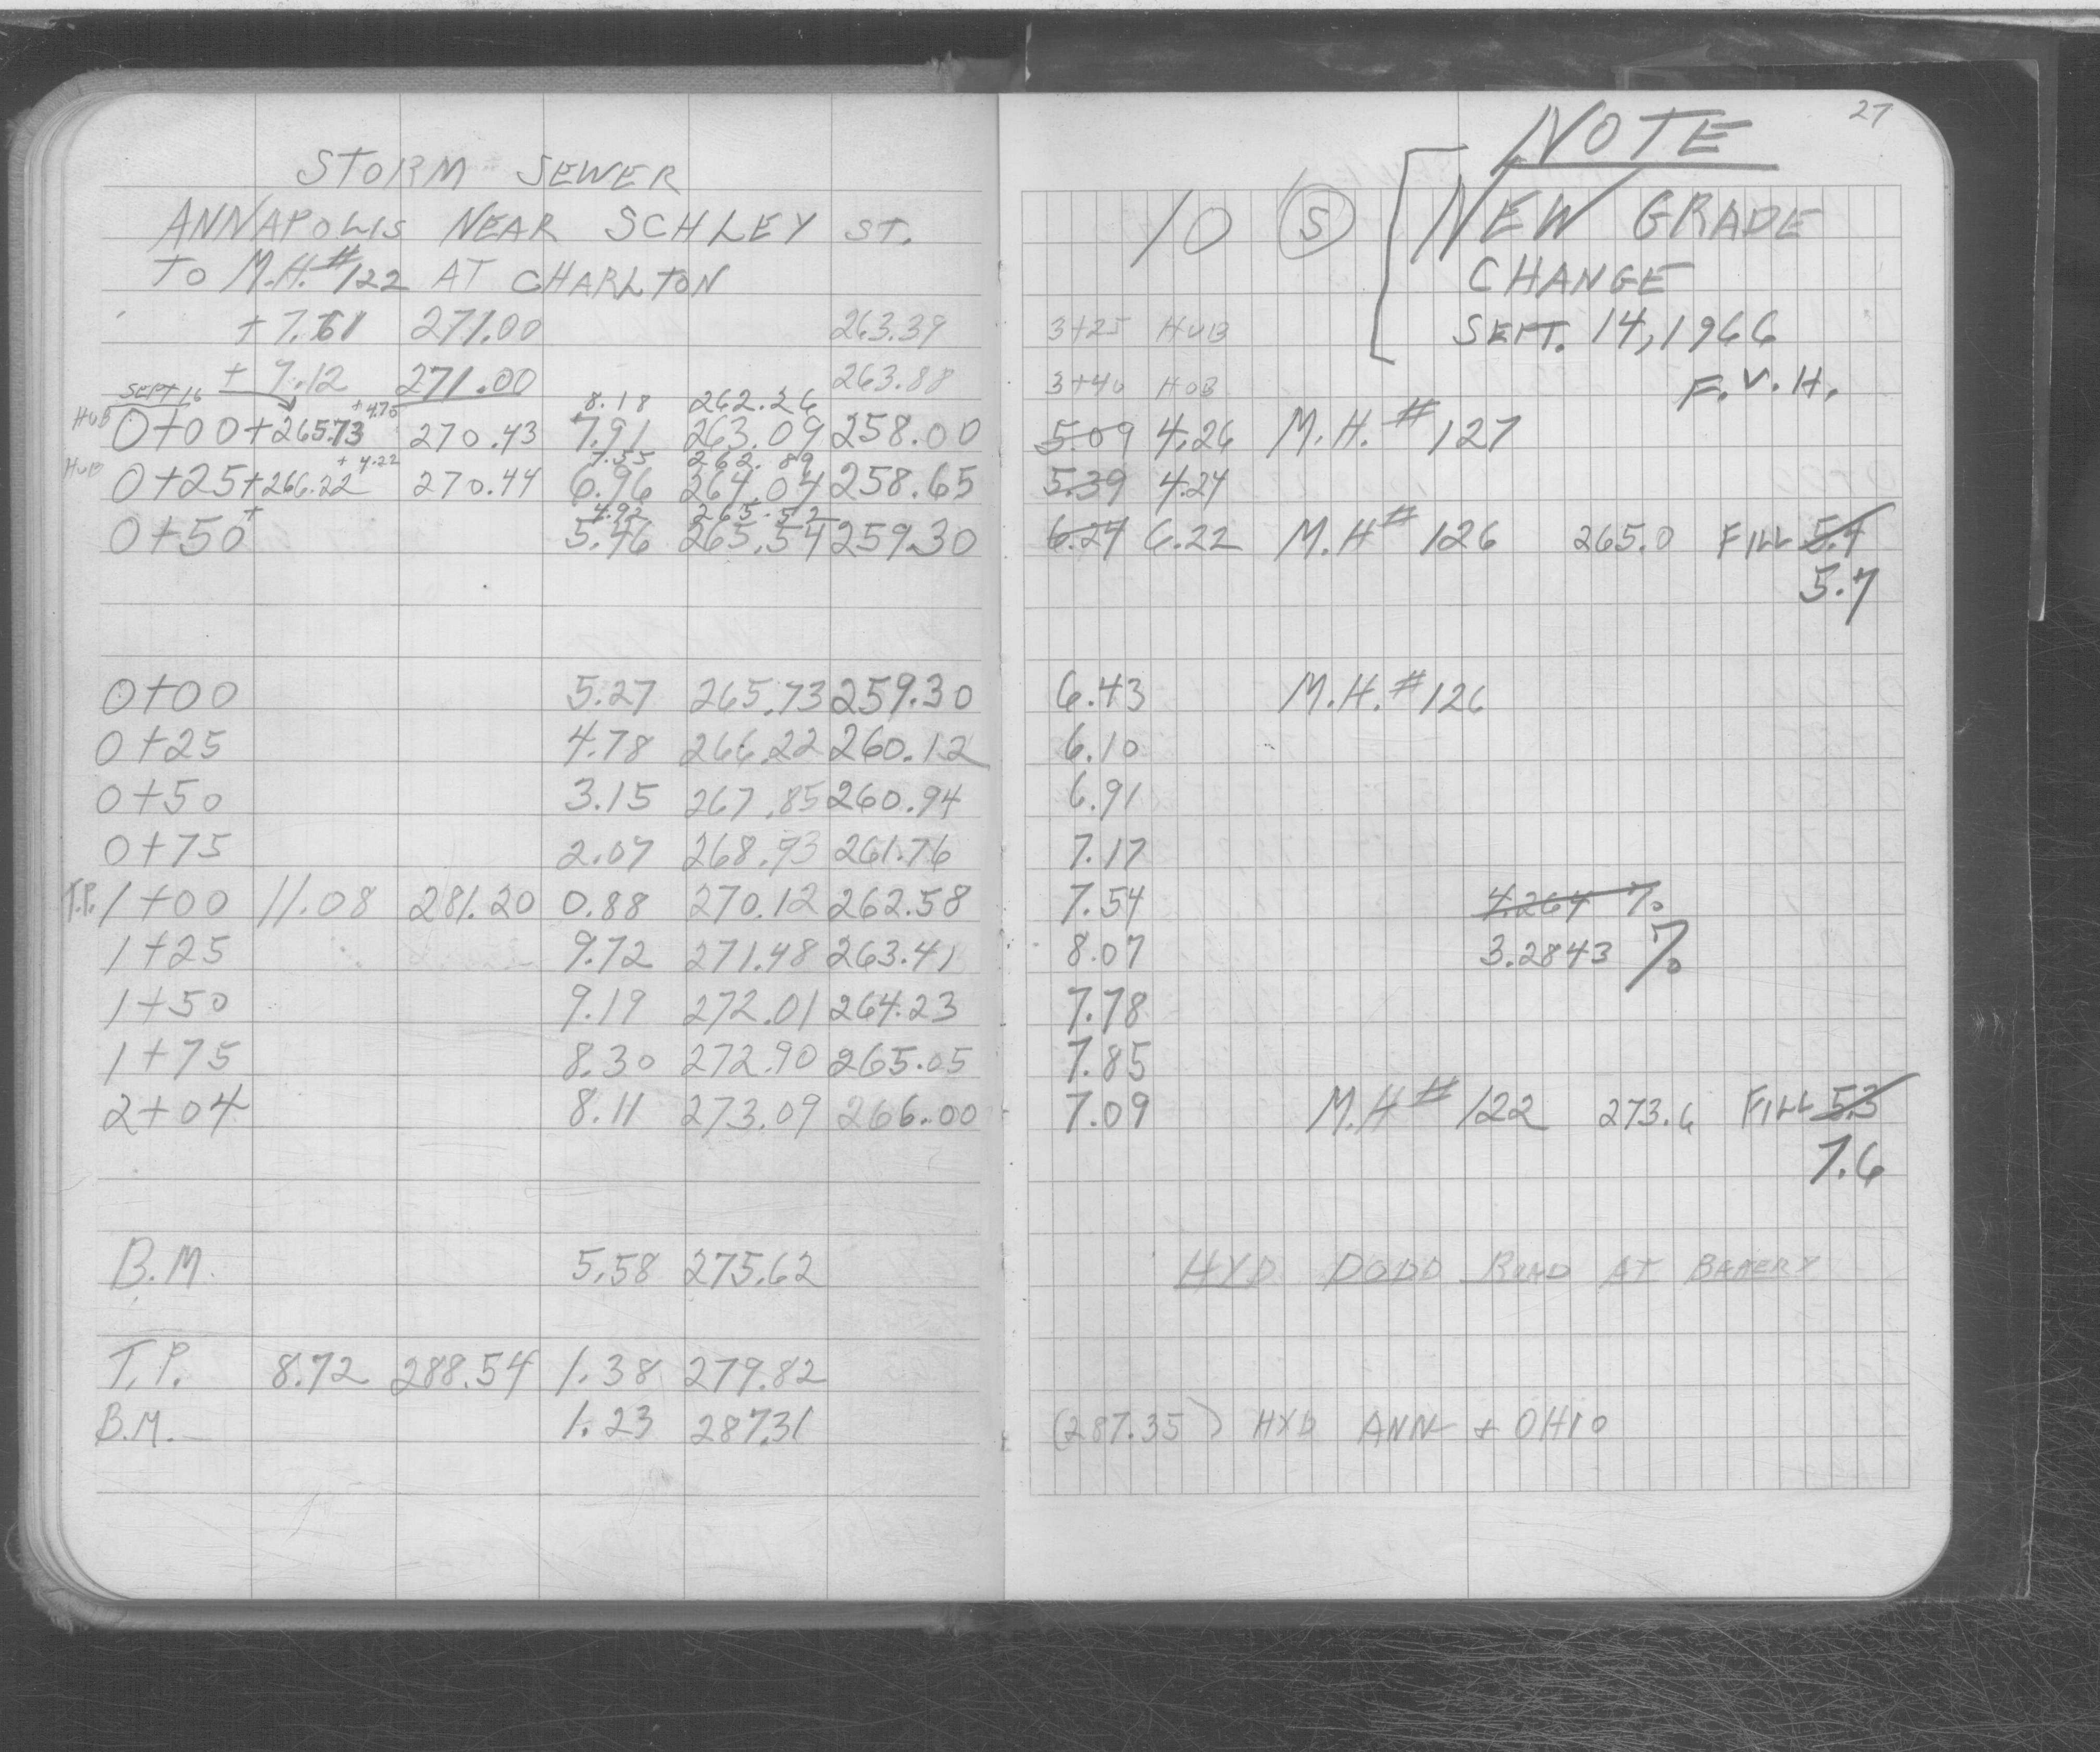 STORM SEWER
ANNAPOLIS NEAR SCHLEY ST.
TO M.H.#122 AT CHARLTON
+7.61 271.00 263.39
+7.12 271.00 263.88
SEPT 16 +4.70 8.18 262.26
HUB 0+00 +265.73 270.43 7.91 263.09 258.00
+4.22 7.55 262.89
HUB 0+25 +266.22 270.44 6.96 264.04 258.65
4.92 265.52
0+50+ 5.46 265.54 259.30
0+00 5.27 265.73 259.30
0+25 4.78 266.22 260.12
0+50 3.15 267.85 260.94
0+75 2.07 268.93 261.76
T.P. 1+00 11.08 281.20 0.88 270.12 262.58
1+25 9.72 271.48 263.41
1+50 9.19 272.01 264.23
1+75 8.30 272.90 265.05
2+04 8.11 273.09 266.00
B.M. 5.58 275.62
T.P. 8.72 288.54 1.38 279.82
B.M. 1.23 287.31
27
NOTE
10 (S) NEW GRADE
CHANGE
3+25 HUB SEPT. 14, 1966
3+40 HUB F.V.H.
5.09 4.26 M.H.#127
5.39 4.24
6.24 6.22 M.H# 126 265.0 FILL 5.4
5.7
6.43 M.H.#126
6.10
6.91
7.17
7.54 4.264 %
8.07 3.2843 %
7.78
7.85
7.09 M.H# 122 273.6 FILL 5.3
7.6
HYD DODD ROAD AT BAKERY
(287.35) HYD ANN + OHIO